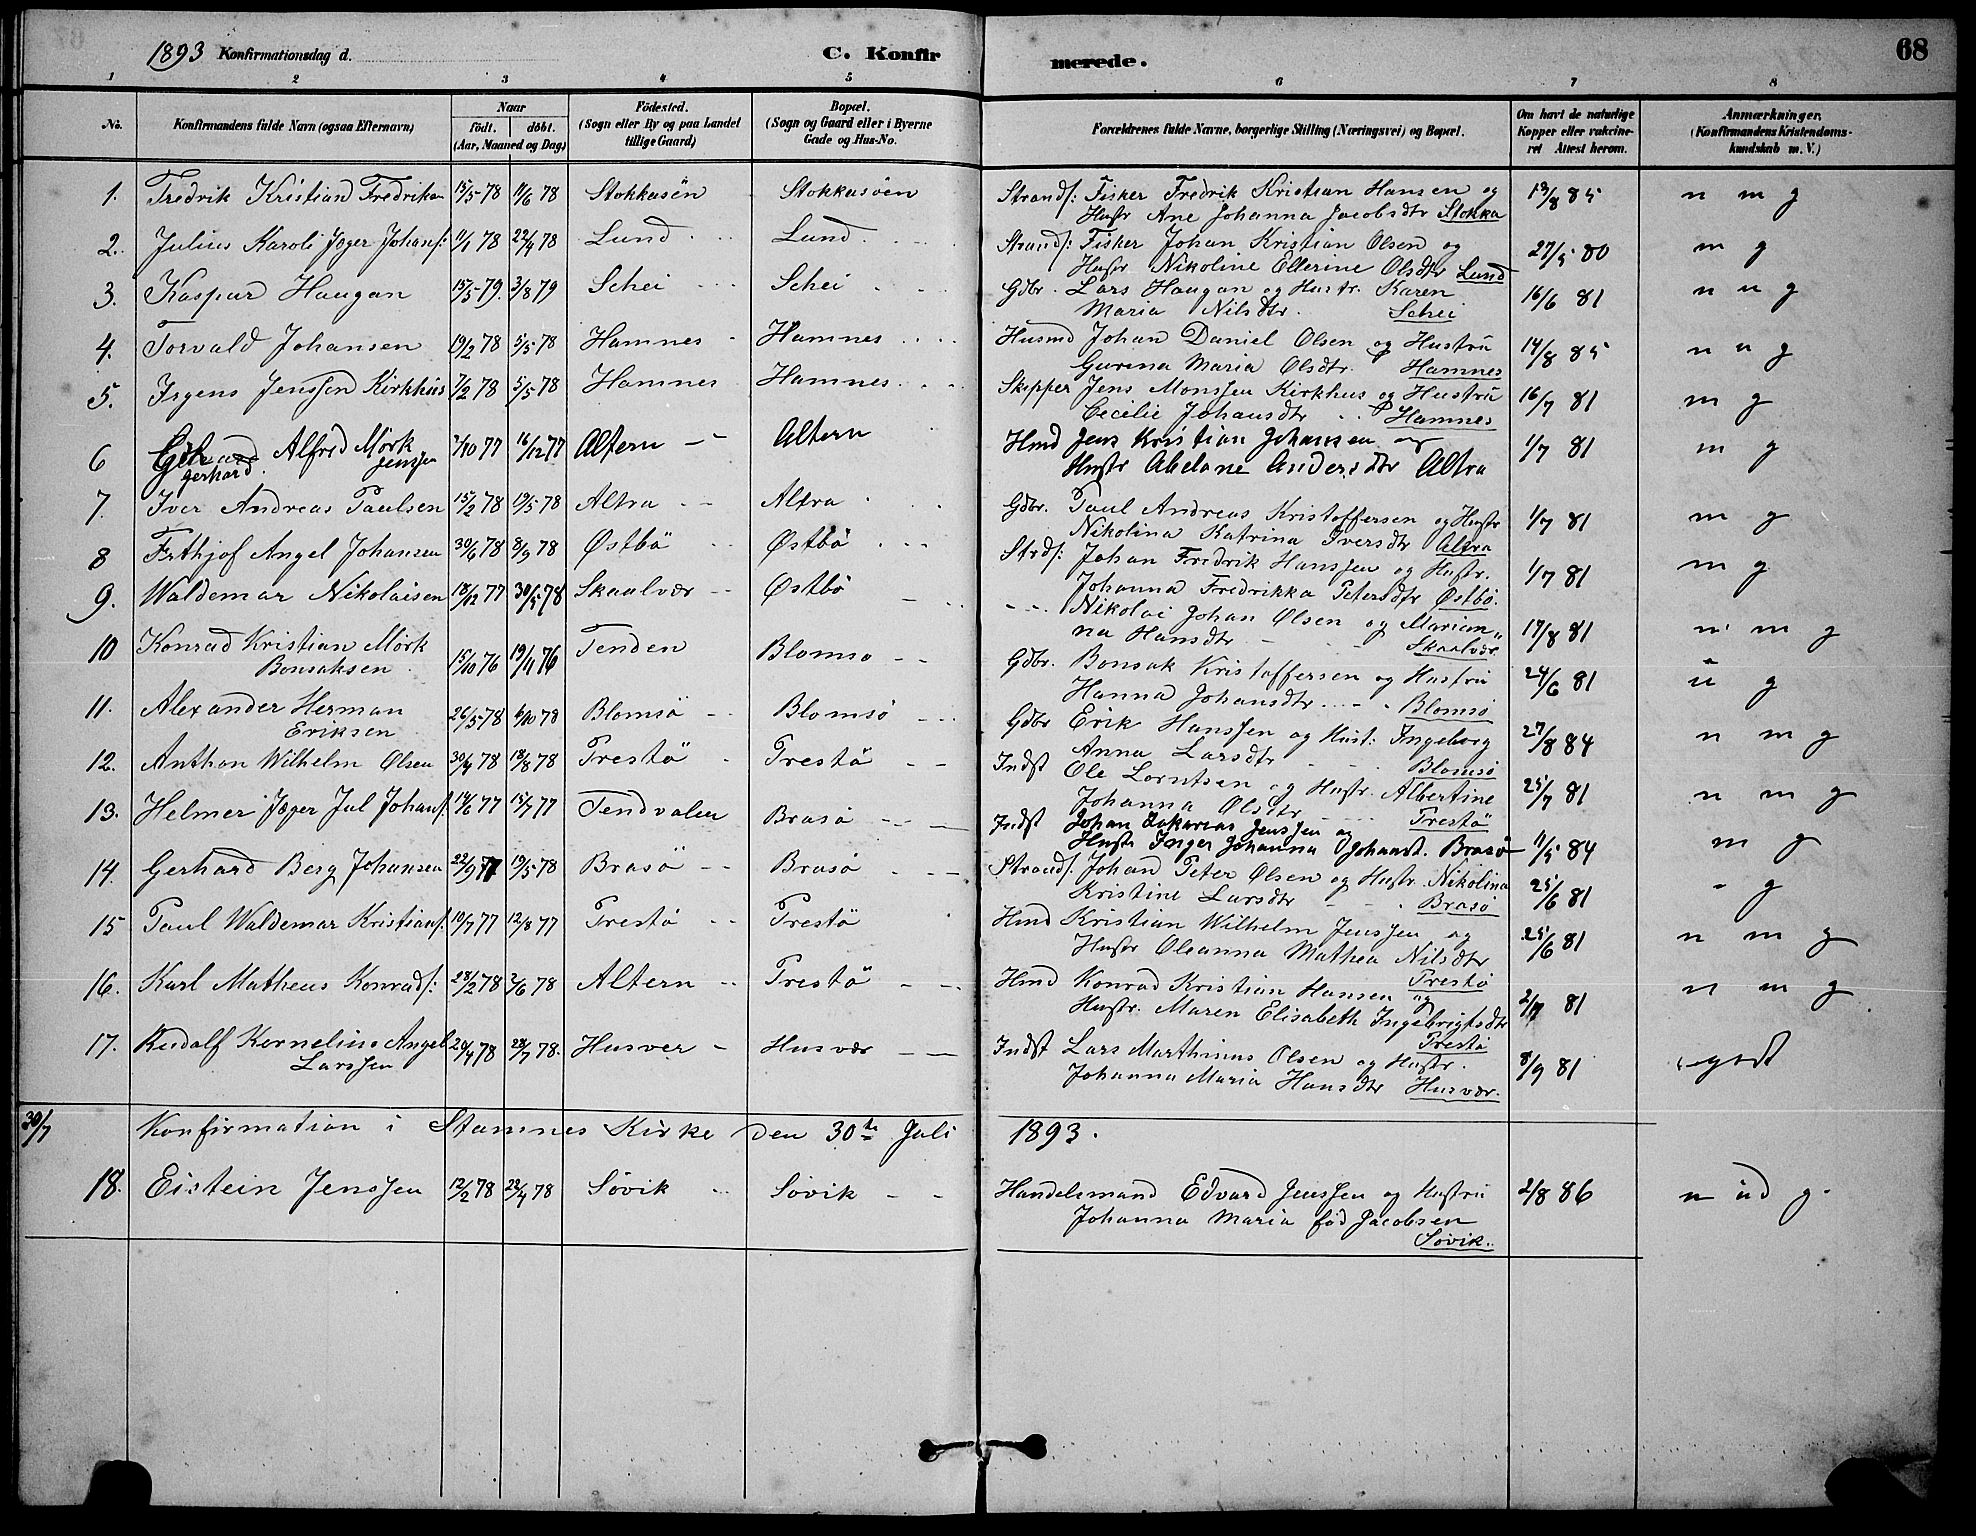 68
1893 Konfirmationsdag d. C. Konfirmerede.
1 2 3 4 5 6 7 8
No. Konfirmandens fulde Navn (ogsaa Efternavn) Naar født. døbt. (Aar, Maaned og Dag) Fødested. (Sogn eller By og paa Landet tillige Gaard) Bopæl. (Sogn og Gaard eller i Byerne Gade og Hus-No. Forældrenes fulde Navne, borgerlige Stilling (Næringsvei) og Bopæl. Om havt de naturlige Kopper eller vakcineret Attest herom. Anmærkninger. (Konfirmandens Kristendomskundskab m. V.)
1. Fredrik Kristian Fredriksen 15/5 78 11/6 78 Stokkasön Stokkasöen Strands: Fisker Fredrik Kristian Hansen og 13/8 85 n m g
Hustr Ane Johanna Jacobsdtr Stokka
2. Julius Karoli Jæger Johans: 11/1 78 22/4 78 Lund Lund Strands: Fisker Johan Kristian Olsen og 27/5 80 m g
Hustr Nikoline Ellerine Olsdtr Lund
3. Kaspar Haugan 15/5 79. 3/8 79 Schei Schei Gdbr. Lars Haugan og Hustr. Karen 16/6 81 n u g
Maria Nilsdtr. Schei
4. Torvald Johansen 19/2 78 5/5 78 Hamnes Hamnes Husmd Johan Daniel Olsen og Hustru 14/8 85 n u g
Gurina Maria Olsdtr. Hamnes
5. Irgens Jenssen Kirkhus 7/2 78 5/5 78 Hamnes Hamnes Skipper Jens Monssen Kirkhus og Hustru 16/7 81 m g
Cecilie Johansdtr Hamnes
6 Alfred Mörk 7/10 77 16/12 77 Altern Altern Hmd Jens Kristian Johansen og 1/7 81 m g
Gerhard. Jenssen Hustr Abelone Andersdtr Altra
7. Iver Andreas Paulsen 15/2 78 19/5 78 Altra Altra Gdbr. Paul Andreas Kristoffersen og Hustr 1/7 81 m g
Nikolina Katrina Iversdtr Altra
8 Frthjof Angel Johansen 30/6 78 8/9 78 Østbö Østbö Strds: Johan Fredrik Hanssen og Hustr. 1/7 81 m g
Johanna Fredrikka Petersdtr Østbö.
9. Waldemar Nikolaisen 18/12 77 30/5 78 Skaalvær Østbö Nikolai Johan Olsen og Marian„ 17/8 81 n m g
na Hansdtr Skaalvær
10 Konrad Kristian Mörk 15/10 76 19/11 76 Tenden Blomsö Gdbr. Bonsak Kristoffersen og Hustru 24/6 81 u g
Bonsaksen Hanna Johansdtr Blomsö
11. Alexander Herman 26/5 78 6/10 78 Blomsö Blomsö Gdbr Erik Hanssen og Hust: Ingeborg 27/8 84 n m g
Eriksen Anna Larsdtr Blomsö
12. Anthon Wilhelm Olsen 30/4 78 18/8 78 Trestö Trestö Indst Ole Lorntsen og Hustr. Albertine 25/7 81 n m g
Johanna Olsdtr Trestö
13. Helmer Jæger Jul Johans: 14/6 77 15/7 77 Tendvalen Brasö Indst Johan Zakarias Jenssen og 11/5 84 m g
Hustr Inger Johanna Johansd. Brasö
14. Gerhard Berg Johansen 22/9 77 19/5 78 Brasö Brasö Strands. Johan Peter Olsen og Hustr. Nikolina 25/6 81 g
Kristine Larsdtr Brasö
15 Paul Waldemar Kristians: 10/7 77 12/8 77 Trestö Trestö Hmd Kristian Wilhelm Jenssen og 25/6 81 n m g
Hustr Oleanna Mathea Nilsdtr Trestö
16. Karl Matheus Konrads: 28/2 78 2/6 78 Altern Trestö Hmd Konrad Kristian Hansen og 2/7 81 n m g
Hustr. Maren Elisabeth Ingebrigtsdtr Trestö
17. Rudolf Kornelius Angel 20/4 78 28/7 78. Husver Husvær Indst Lars Marthinus Olsen og Hustr. 8/9 81 godt
Larssen Johanna Maria Hansdtr Husvær.
30/7 Konfirmation i Stamnes Kirke den 30te Juli 1893.
18. Eistein Jenssen 12/2 78 22/4 78 Sövik Sövik Handelsmand Edvard Jenssen og Hustru 2/8 86 n ud g.
Johanna Maria född Jacobsen
Sövik.